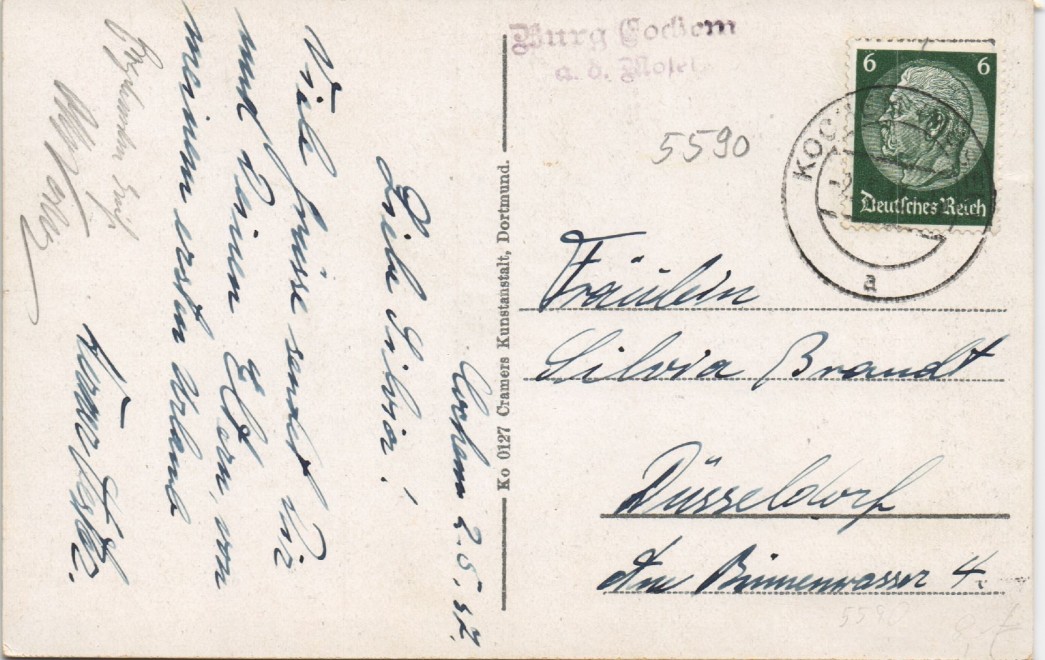 Cochem 2.5.37.
Liebe Silvia!
Viele Grüsse sendet Dir
und Deinen Eltern, von
meinem ersten Urlaub
Ko 0127 Cramers Kunstanstalt, Dortmund.
Burg Cochem
a. d. Mosel
5590
6 6
Deutsches Reich
KOC
a
Fräulein
Silvia Brandt
Düsseldorf
Am Binnenwasser 4
5590